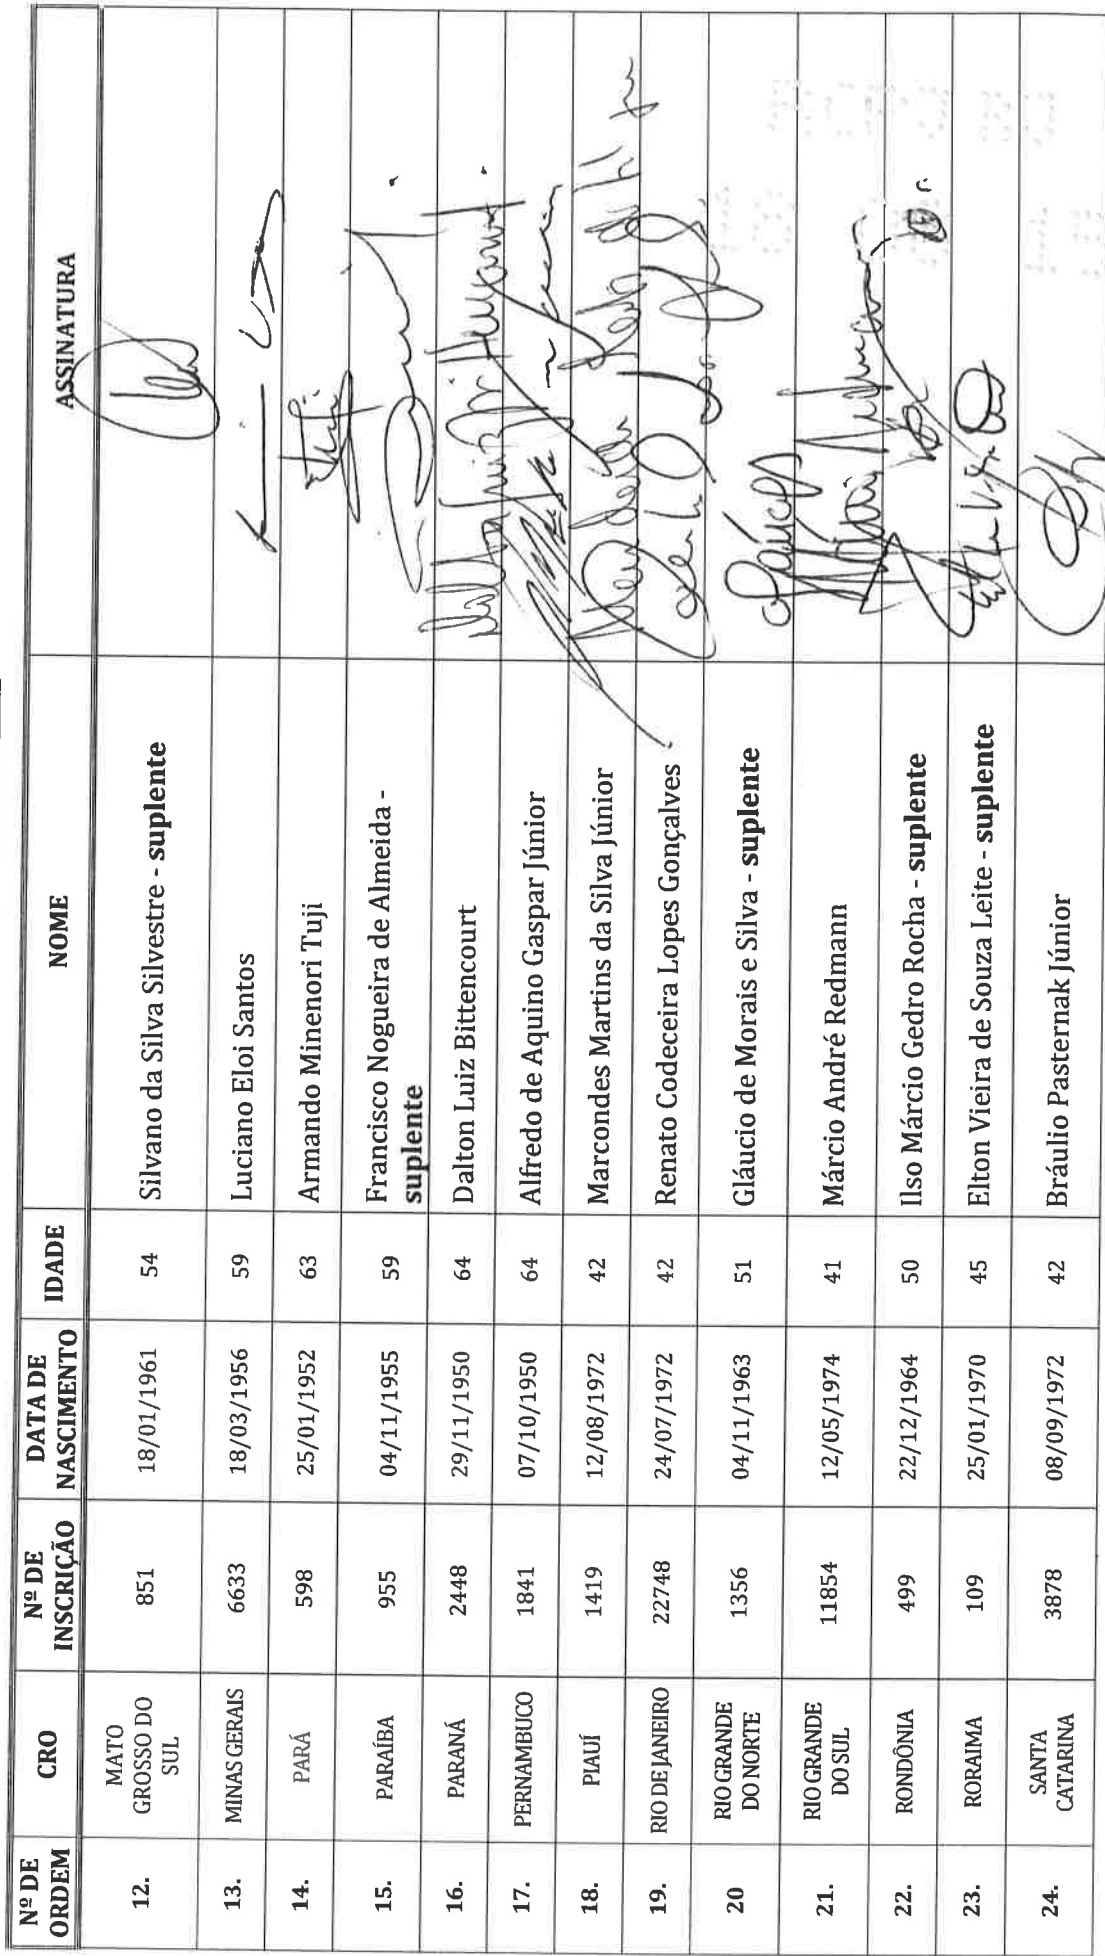 Nº DE ORDEM CRO Nº DE INSCRIÇÃO DATA DE NASCIMENTO IDADE NOME ASSINATURA
12. MATO GROSSO DO SUL 851 18/01/1961 54 Silvano da Silva Silvestre - suplente
13. MINAS GERAIS 6633 18/03/1956 59 Luciano Eloi Santos
14. PARÁ 598 25/01/1952 63 Armando Minenori Tuji
15. PARAÍBA 955 04/11/1955 59 Francisco Nogueira de Almeida - suplente
16. PARANÁ 2448 29/11/1950 64 Dalton Luiz Bittencourt
17. PERNAMBUCO 1841 07/10/1950 64 Alfredo de Aquino Gaspar Júnior
18. PIAUÍ 1419 12/08/1972 42 Marcondes Martins da Silva Júnior
19. RIO DE JANEIRO 22748 24/07/1972 42 Renato Codeceira Lopes Gonçalves
20 RIO GRANDE DO NORTE 1356 04/11/1963 51 Gláucio de Morais e Silva - suplente
21. RIO GRANDE DO SUL 11854 12/05/1974 41 Márcio André Redmann
22. RONDÔNIA 499 22/12/1964 50 Ilso Márcio Gedro Rocha - suplente
23. RORAIMA 109 25/01/1970 45 Elton Vieira de Souza Leite - suplente
24. SANTA CATARINA 3878 08/09/1972 42 Bráulio Pasternak Júnior